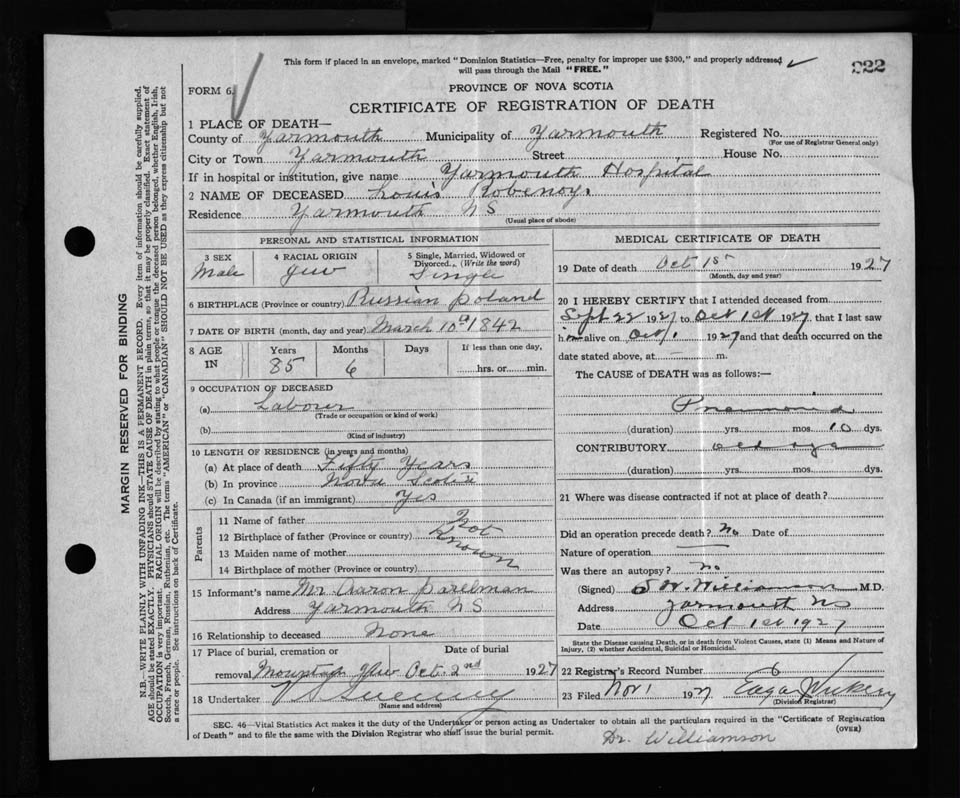 This form if placed in an envelope, marked "Dominion Statistics—Free, penalty for improper use $300," and properly addressed
will pass through the Mail "FREE."
222
FORM 6.
PROVINCE OF NOVA SCOTIA
CERTIFICATE OF REGISTRATION OF DEATH
1 PLACE OF DEATH—
County of Yarmouth Municipality of Yarmouth Registered No.
(For use of Registrar General only)
City or Town Yarmouth Street House No.
If in hospital or institution, give name Yarmouth Hospital
2 NAME OF DECEASED Louis
Residence Yarmouth NS
(Usual place of abode)
PERSONAL AND STATISTICAL INFORMATION
3 SEX Male
4 RACIAL ORIGIN Jew
5 Single, Married, Widowed or Divorced. (Write the word) Single
6 BIRTHPLACE (Province or country) Russian Poland
7 DATE OF BIRTH (month, day and year) March 10 1842
8 AGE IN Years 85 Months 6 Days If less than one day, hrs. or min.
9 OCCUPATION OF DECEASED
(a) Labourer
(Trade or occupation or kind of work)
(b)
(Kind of industry)
10 LENGTH OF RESIDENCE (in years and months)
(a) At place of death Fifty Years
(b) In province Nova Scotia
(c) In Canada (if an immigrant) Yes
Parents
11 Name of father Not
12 Birthplace of father (Province or country) Known
13 Maiden name of mother
14 Birthplace of mother (Province or country)
15 Informant's name Mr. Aaron Parelman
Address Yarmouth NS
16 Relationship to deceased None
17 Place of burial, cremation or removal Mountain Date of burial Oct. 2nd 1927
18 Undertaker
(Name and address)
MEDICAL CERTIFICATE OF DEATH
19 Date of death Oct 1st 1927
(Month, day and year)
20 I HEREBY CERTIFY that I attended deceased from
Sept 22 1927 to Oct 1st 1927 that I last saw
him alive on Oct 1 1927 and that death occurred on the
date stated above, at — m.
The CAUSE of DEATH was as follows:—
Pneumonia
(duration) yrs. mos. 10 dys.
CONTRIBUTORY old age
(duration) yrs. mos. dys.
21 Where was disease contracted if not at place of death?
Did an operation precede death? No Date of
Nature of operation
Was there an autopsy? no
(Signed) S W Williamson M.D.
Address Yarmouth NS
Date Oct 1st 1927
State the Disease causing Death, or in death from Violent Causes, state (1) Means and Nature of
Injury, (2) whether Accidental, Suicidal or Homicidal.
22 Registrar's Record Number 6
23 Filed Nov 1 1927 Edgar
(Division Registrar)
SEC. 46—Vital Statistics Act makes it the duty of the Undertaker or person acting as Undertaker to obtain all the particulars required in the "Certificate of Registration
of Death" and to file the same with the Division Registrar who shall issue the burial permit.
(OVER)
Dr. Williamson
MARGIN RESERVED FOR BINDING
N.B.—WRITE PLAINLY WITH UNFADING INK—THIS IS A PERMANENT RECORD. Every item of information should be carefully supplied.
AGE should be stated EXACTLY. PHYSICIANS should STATE CAUSE OF DEATH in plain terms, so that it may be properly classified. Exact statement of
OCCUPATION is very important. RACIAL ORIGIN will be described by stating to what people or tongue the deceased person belonged, whether English, Irish,
Scotch, French, German, Russian, Ruthenian, etc. The terms "AMERICAN" or "CANADIAN" SHOULD NOT BE USED as they express citizenship but not
a race or people. See instructions on back of Certificate.